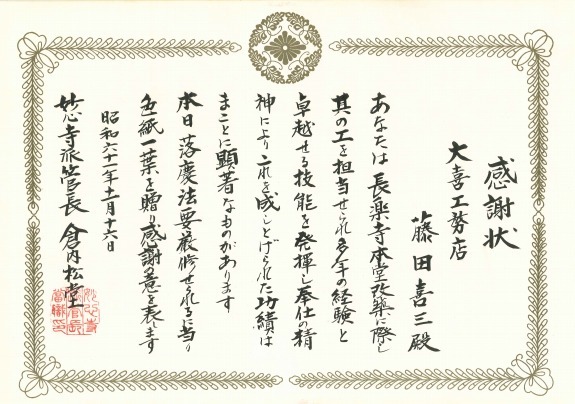 感謝状
大喜工務店
藤田喜三殿
あなたは長薬寺本堂改築に際し
其の工を担当せられ多年の経験と
卓越せる技能を発揮し奉仕の精
神によりこれを成しとげられた功績は
まことに顕著なものがあります
本日落慶法要厳修せられるに当り
色紙一葉を贈り感謝の意を表します
昭和六十一年十一月十六日
妙心寺派管長 倉内松堂